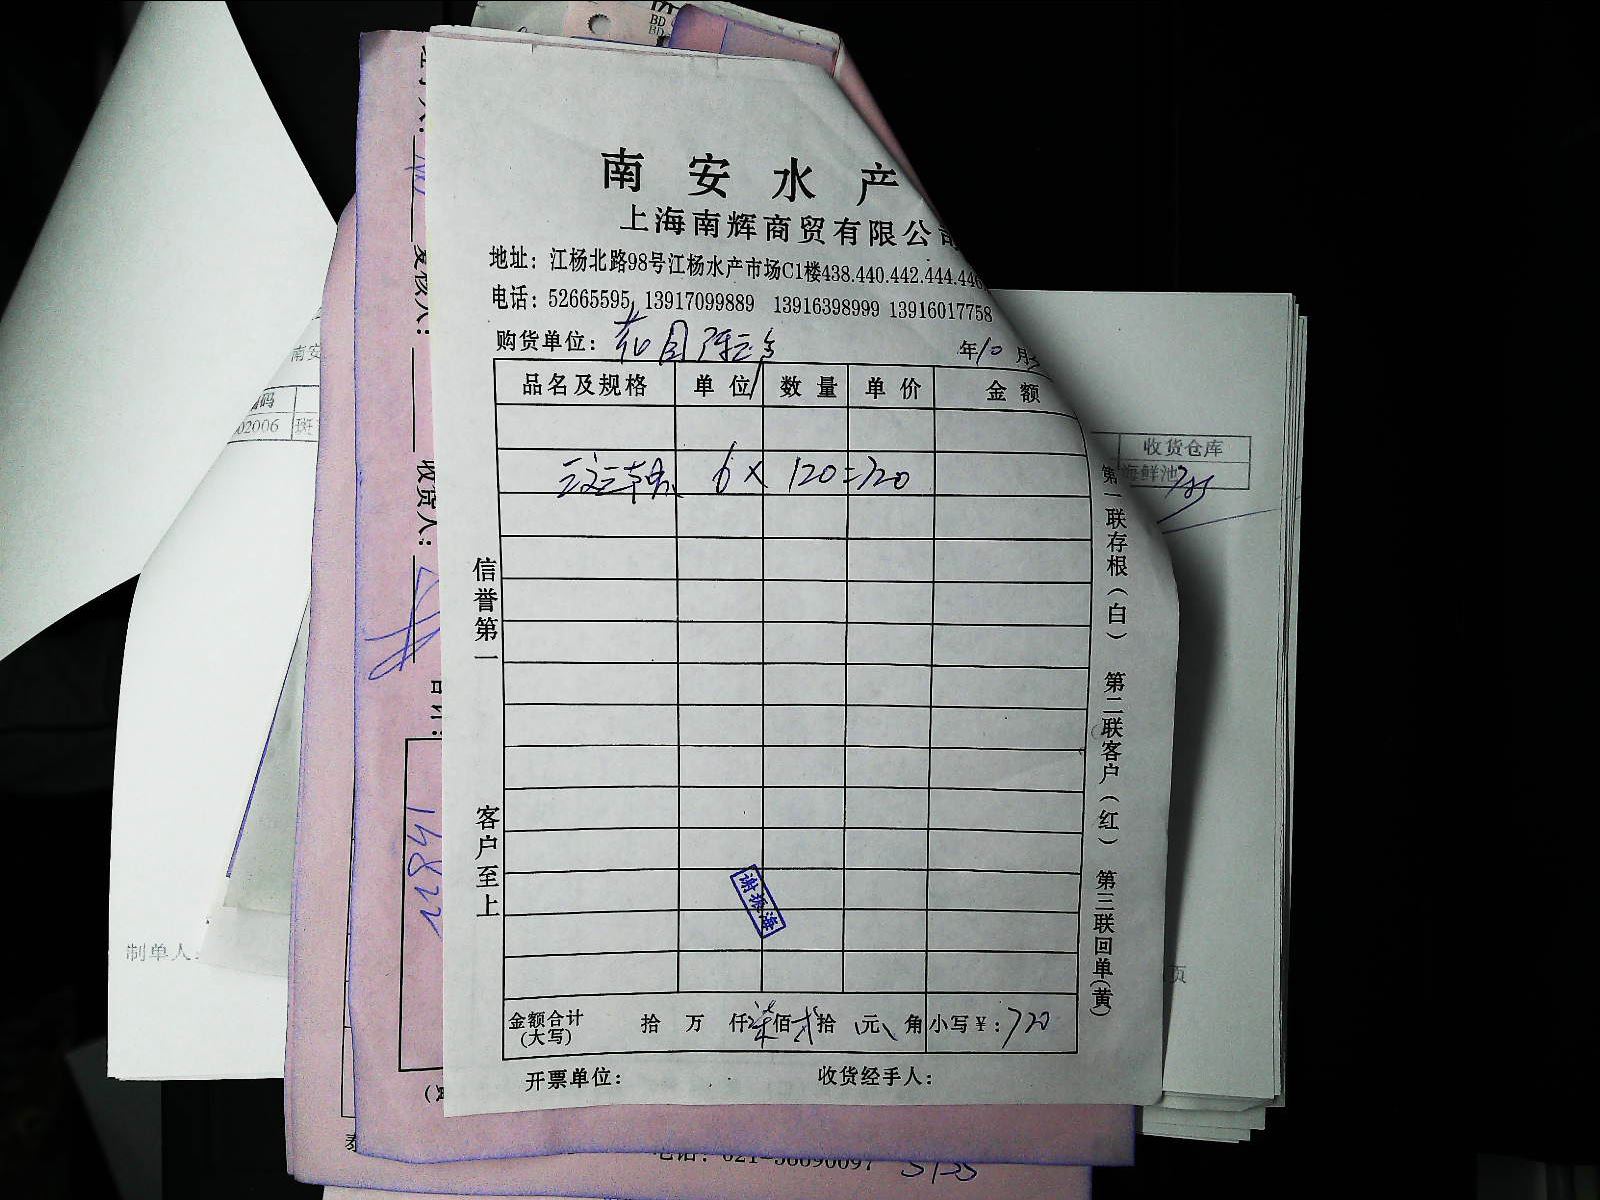 南安水产
上海南辉商贸有限公司
地址：江杨北路98号江杨水产市场C1楼438.440.442.444.446
电话：52665595 13917099889 13916398999 13916017758
购货单位：
年10月
品名及规格 单位 数量 单价 金额
6 × 120 = 720
信誉第一
客户至上
谢振海
第一联存根(白) 第二联客户(红) 第三联回单(黄)
金额合计 拾 万 仟 柒 佰 贰 拾 元 角 小写￥：720
(大写)
开票单位： 收货经手人：
收货人：
22841
制单人：
南安
编码
02006 斑
收货仓库
海鲜池
页
电话：021-56690097
5135